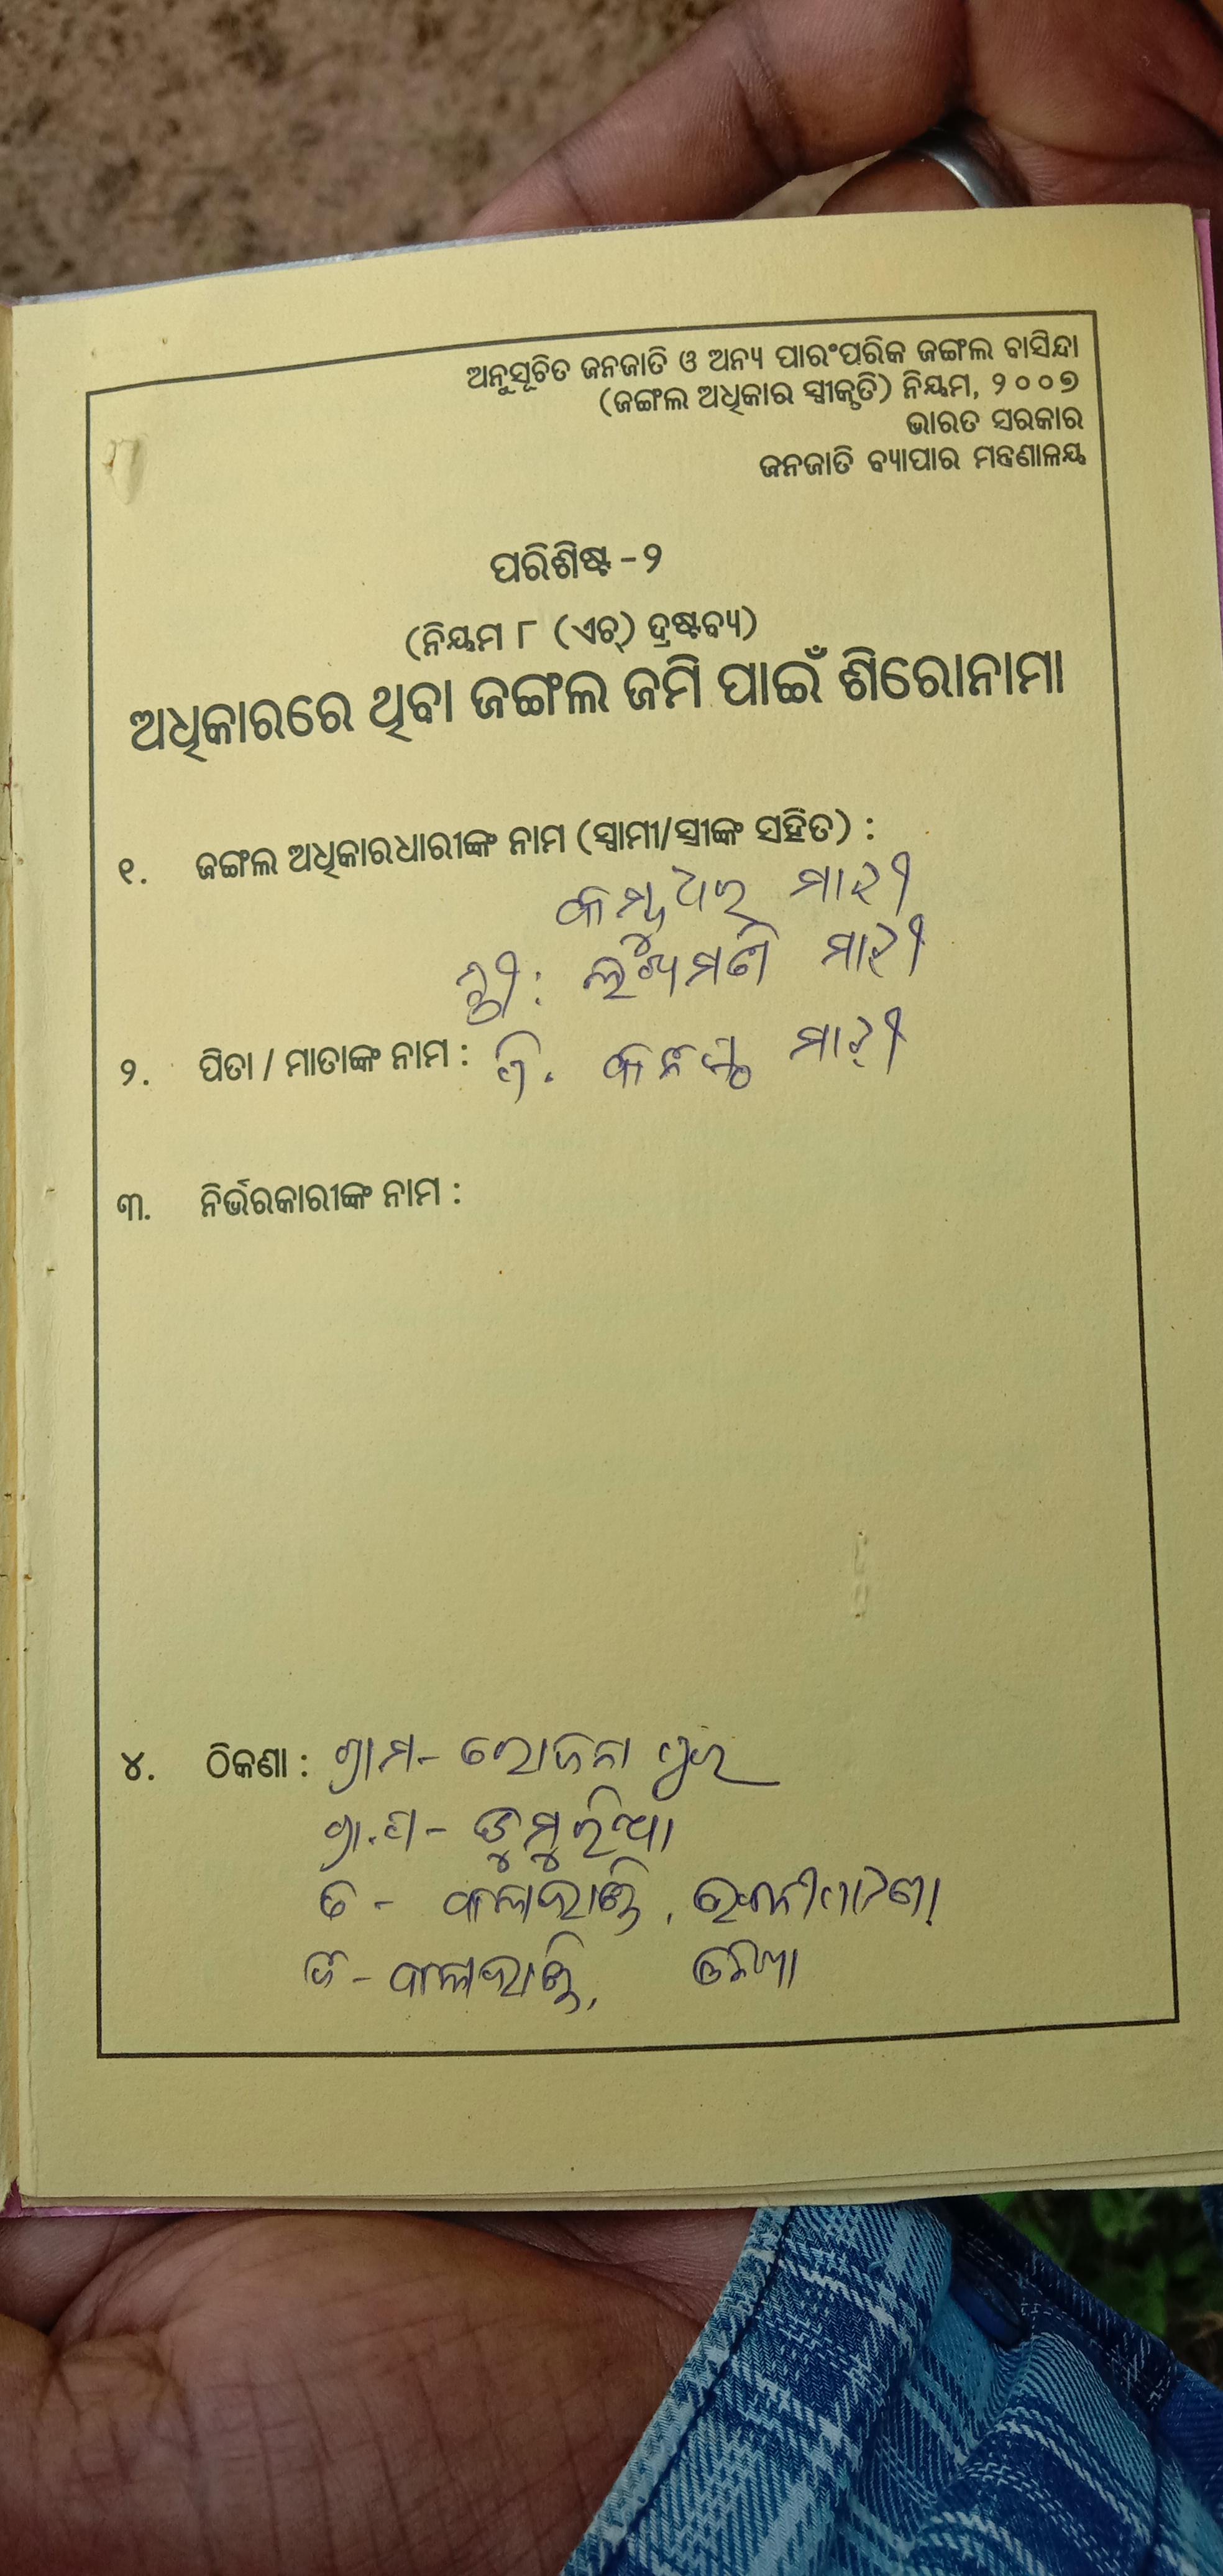 ଅନୁସୂଚିତ ଜନଜାତି ଓ ଅନ୍ୟ ପାରଂପରିକ ଜଙ୍ଗଲ ବାସିନ୍ଦା
(ଜଙ୍ଗଲ ଅଧିକାର ସ୍ୱୀକୃତି) ନିୟମ, ୨୦୦୭
ଭାରତ ସରକାର
ଜନଜାତି ବ୍ୟାପାର ମନ୍ତ୍ରଣାଳୟ
ପରିଶିଷ୍ଟ - ୨
(ନିୟମ ୮ (ଏଚ୍) ଦ୍ରଷ୍ଟବ୍ୟ)
ଅଧିକାରରେ ଥିବା ଜଙ୍ଗଲ ଜମି ପାଇଁ ଶିରୋନାମା
୧. ଜଙ୍ଗଲ ଅଧିକାରଧାରୀଙ୍କ ନାମ (ସ୍ୱାମୀ/ସ୍ତ୍ରୀଙ୍କ ସହିତ) :
ମାଝୀ
ସ୍ତ୍ରୀ: ମାଝୀ
୨. ପିତା / ମାତାଙ୍କ ନାମ : ମାଝୀ
୩. ନିର୍ଭରକାରୀଙ୍କ ନାମ :
୪. ଠିକଣା : ଗ୍ରାମ -
ଗ୍ରା.ପ - ଡୁମୁରିଆ
ତ -
ଜି - ଓଡ଼ିଶା